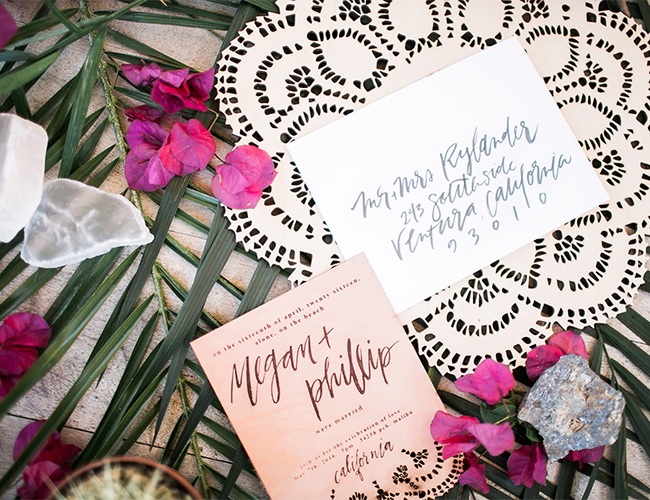 Mr + Mrs Rylander
243 Southside
Ventura, California
93010
on the sixteenth of april, twenty sixteen,
alone, on the beach
Megan +
phillip
were married
join us for the celebration of
malibu
california